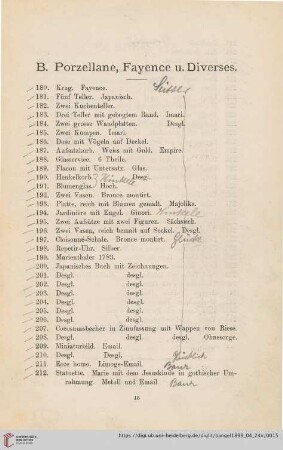 B. Porzellane, Fayence u. Diverses.
180. Krug. Fayence.
181. Fünf Teller. Japanisch.
182. Zwei Kuchenteller.
183. Drei Teller mit gebogtem Rand. Imari.
184. Zwei grosse Wandplatten. Desgl.
185. Zwei Kumpen. Imari.
186. Dose mit Vögeln auf Deckel.
187. Aufsatzkorb. Weiss mit Gold. Empire.
188. Glasservice. 6 Theile.
189. Flacon mit Untersatz. Glas.
190. Henkelkorb. Desgl.
191. Blumenglas. Hoch.
192. Zwei Vasen. Bronce montirt.
193. Platte, reich mit Blumen gemalt. Majolika.
194. Jardinière mit Engel. Ginori. Künkele
195. Zwei Aufsätze mit zwei Figuren. Sächsisch.
196. Zwei Vasen, reich bemalt auf Sockel. Desgl.
197. Cloisonné-Schale. Bronce montirt.
198. Repetir-Uhr. Silber.
199. Marienthaler 1783.
200. Japanisches Buch mit Zeichnungen.
201. Desgl. desgl.
202. Desgl. desgl.
203. Desgl. desgl.
204. Desgl. desgl.
205. Desgl. desgl.
206. Desgl. desgl.
207. Cocusnussbecher in Zinnfassung mit Wappen von Riese.
208. Desgl. desgl. desgl. Ohnesorge.
209. Miniaturbild. Email.
210. Desgl. Desgl.
211. Ecce homo. Limoges-Email. Baur
212. Statuette. Marie mit dem Jesuskinde in gothischer Um-
rahmung. Metall und Email. Baur
http://digi.ub.uni-heidelberg.de/diglit/bangel1899_04_24a/0013